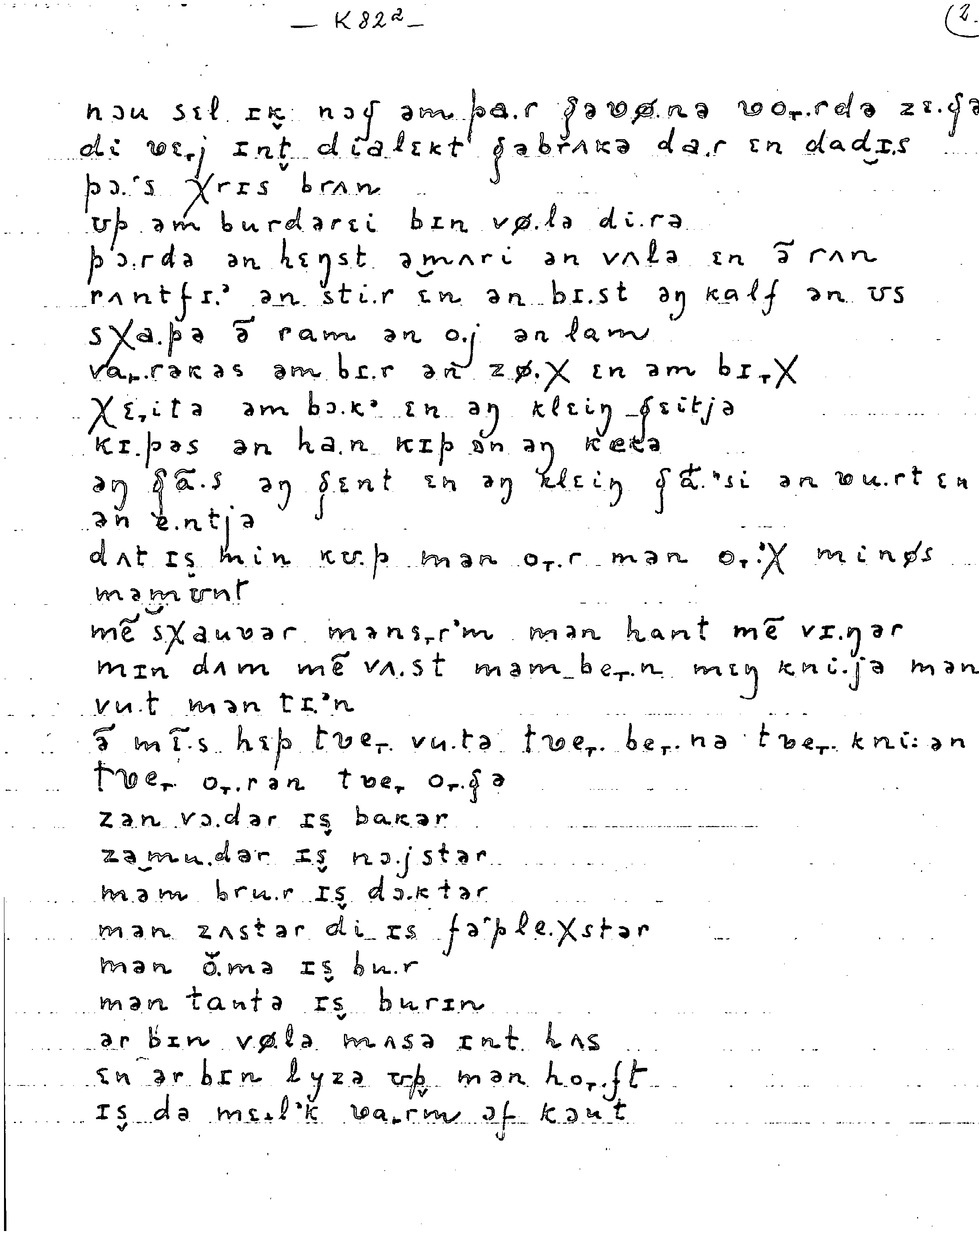 — K 82ª —
(2.
nɔu sɛl ɪk̬ nɔɡ̊ əm pa.r ɡəvø.nə wo.rdə zɛ.ɡə
di wɛ.j ɪnt̬ dialɛkt ɡəbrʌkə da.r ɛn dadɪ̬.s
pɔ.ˑs χrɪs brʌn
ʊp əm burdərɛi bɪn vø.lə di.rə
pɔ.rdə ən hɛŋst əmʌri ən vʌlə ɛn ə̃ rʌn
rʌntfɪ.ˑ ən sti.r ɛn ən bɪ.st əŋ kalf ən ʊs
sχa.pə ə̃ ram ən o.j ən lam
va.rəkəs əm bɛ.r ən zø.χ ɛn əm bɪ.χ
χɛ.itə əm bɔ.kˑ ɛn əŋ klɛiŋ ɡɛitjə
kɪ.pəs ən ha.n kɪp ɛn əŋ ketə
əŋ ɡã.s əŋ ɡɛnt ɛn əŋ klɛiŋ ɡã.ˑsi ən wu.rt ɛn
ən e.ntjə
dʌt ɪs̬ min kʊ.p mən o.r mən o.ˑχ minøs
məmʊnt
mẽ sχauwər məns.rˑm mən hant mẽ vɪ.ŋər
mɪn dʌm mẽ vʌ.st məm be.n mɛŋ kni.jə mən
vu.t mən tɪ.ˑn
ə̃ mĩ.s hɛp twe. vu.tə twe. be.nə twe. kni:ən
twe. o.rən twe. o.ɡə
zən vɔ.dər ɪs̬ bakər
zəmu.dər ɪs̬ nɔ.jstər
məm bru.r ɪs̬ dɔ.ktər
mən zʌstər di ɪs fəˑple.χstər
mən ŏ.mə ɪs̬ bu.r
mən tantə ɪs̬ burɪn
ər bɪn vølə mʌsə ɪnt hʌs
ɛn ər bɪn lyzə ʊp̬ mən ho.ft
ɪs̬ də mɛ.lˑk wa.rm ɔf kɔut